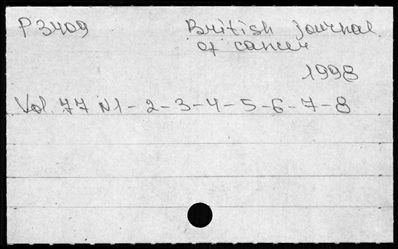 P3409 British Journal
of cancer
1998
Vol. 77 N1-2-3-4-5-6-7-8